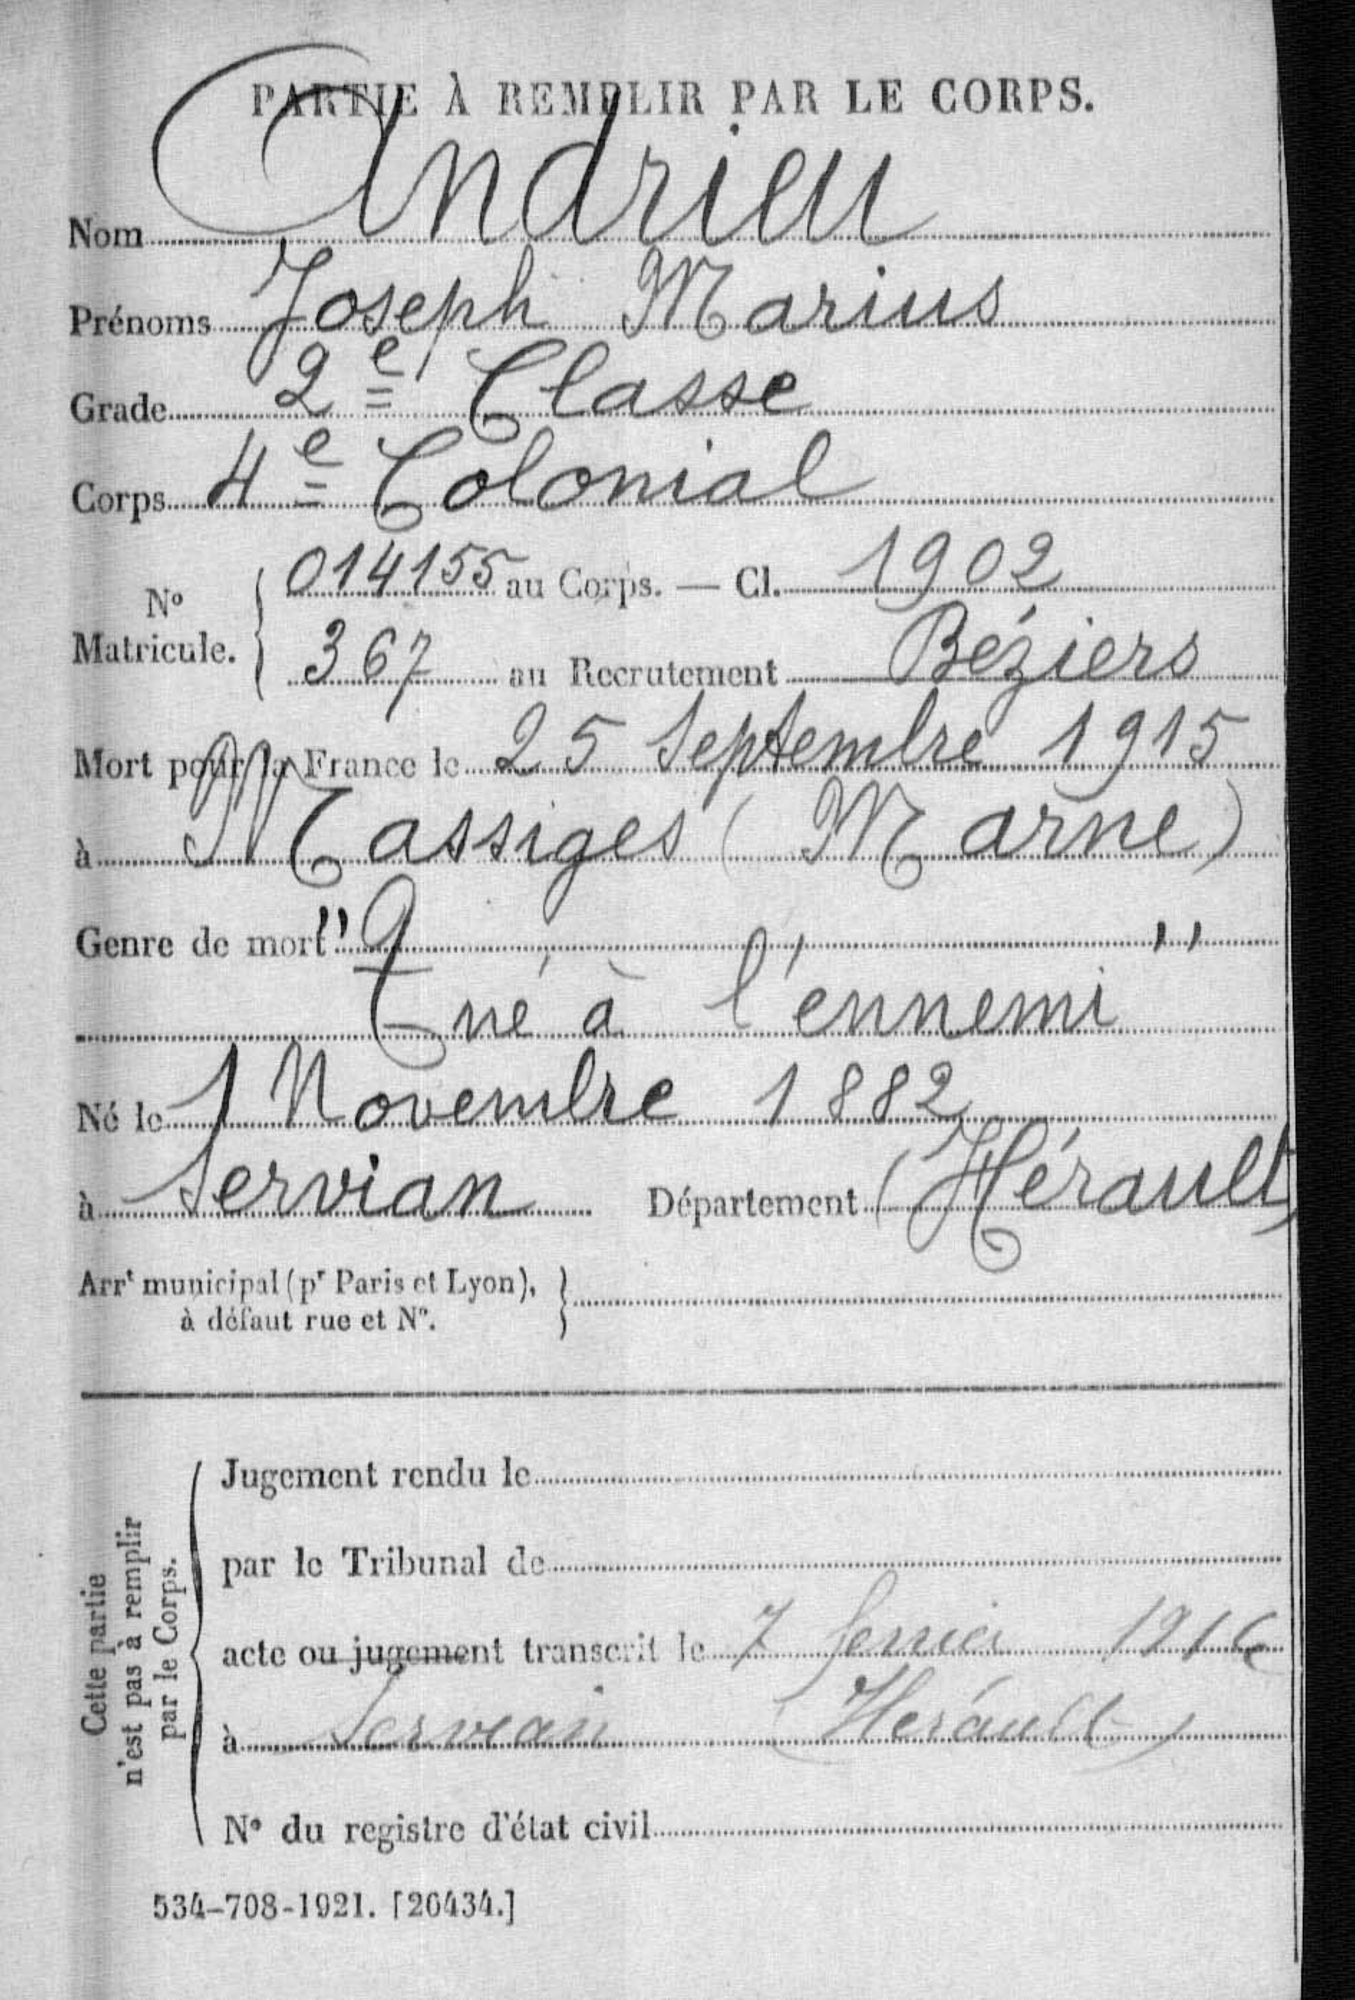 PARTIE À REMPLIR PAR LE CORPS.
Nom Andrieu
Prénoms Joseph Marius
Grade 2e Classe
Corps 4e Colonial
No Matricule. { 014155 au Corps. — Cl. 1902
367 au Recrutement Béziers
Mort pour la France le 25 Septembre 1915
à Massiges (Marne)
Genre de mort " "
Tué à l'ennemi
Né le 1 Novembre 1882
à Servian Département (Hérault)
Arrt municipal (pr Paris et Lyon), }
à défaut rue et No.
Cette partie
n'est pas à remplir
par le Corps.
Jugement rendu le
par le Tribunal de
acte ou jugement transcrit le 7 fevrier 1916
à Servian (Herault)
No du registre d'état civil
534-708-1921. [26434.]